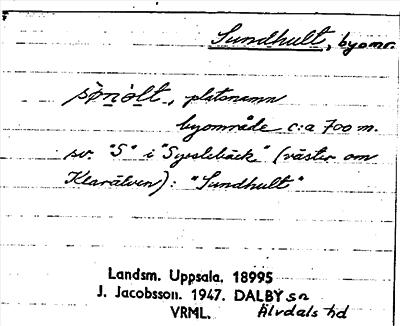 Sundhult, byomr.
sö̀n̥olt, platsnamn
byområde c:a 700 m.
sv. "S" i "Sysslebäck" (väster om
Klarälven): "Sundhult"
Landsm. Uppsala. 18995
J. Jacobsson. 1947. DALBY sn
VRML. Älvdals hd